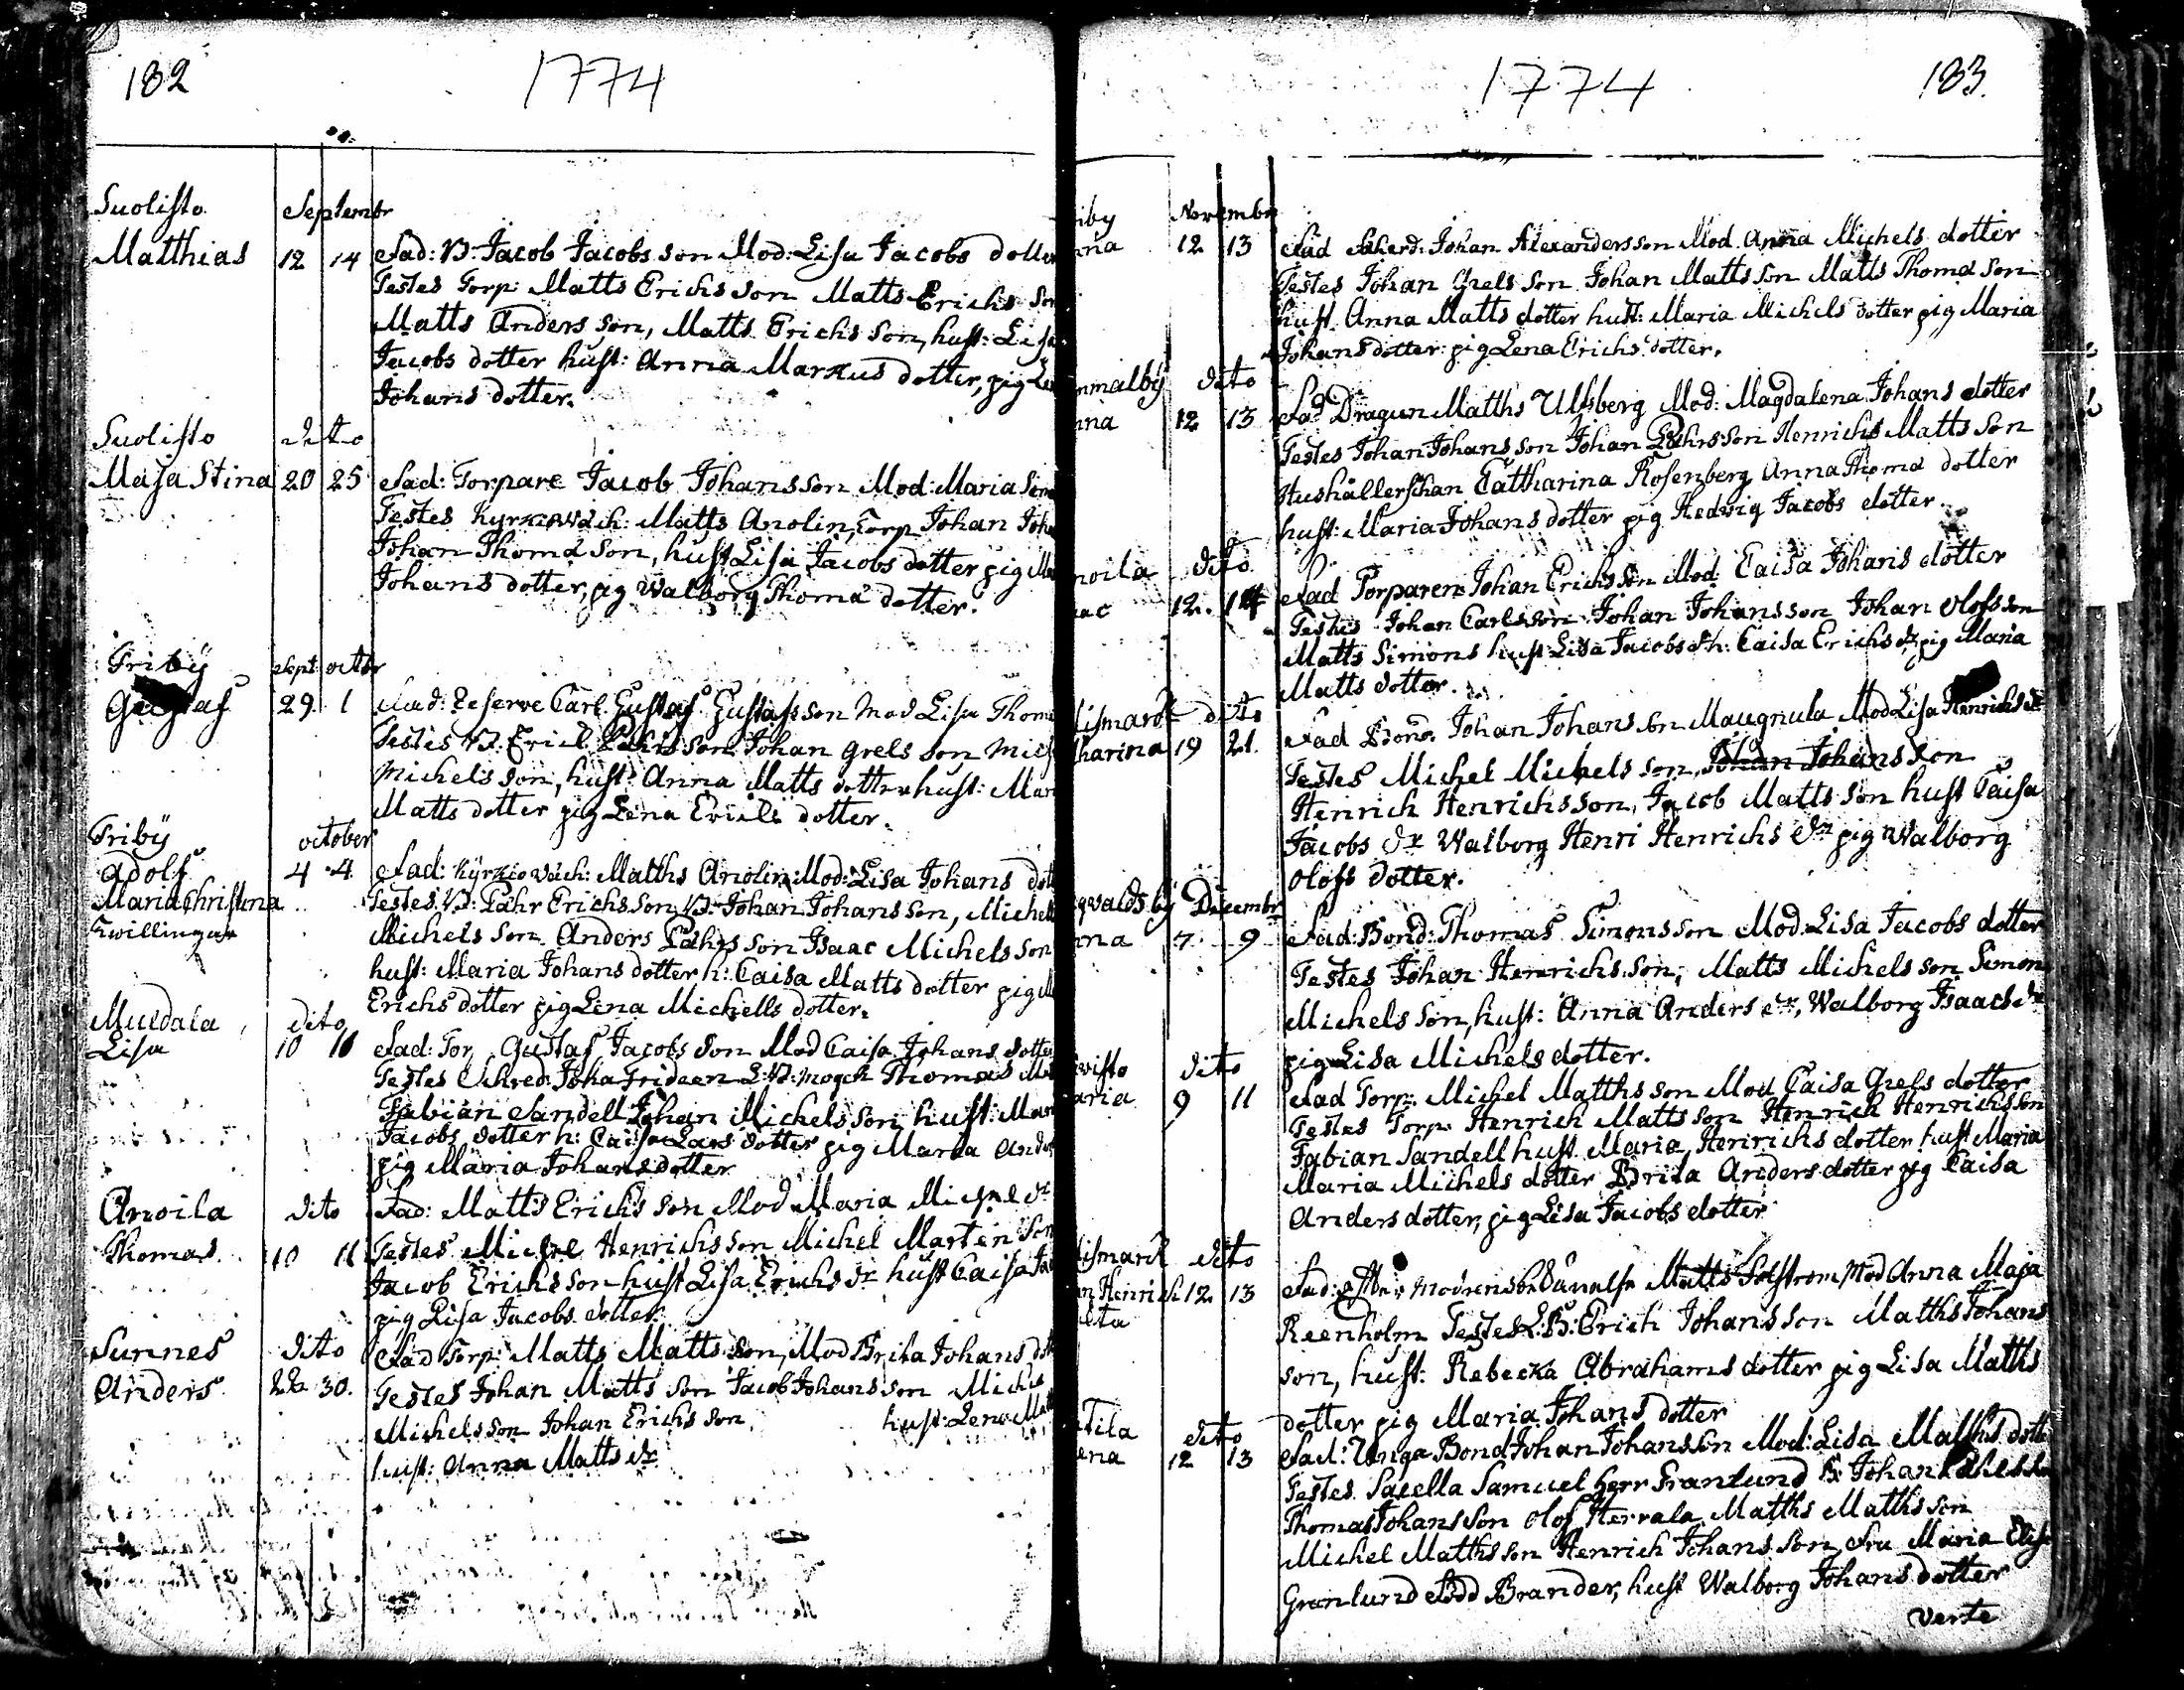 182 1774
Suolisto Septembr
Matthias 12 14 Fad: B. Jacob Jacobs son Mod: Lisa Jacobs dotter
Testes Torp: Matts Erichs son Matts Erichs son
Matts Anders son, Matts Erichs son, hust: Lisa
Jacobs dotter hust: Anna Markus dotter, pig Le
Johans dotter.
Suolisto dito
Maja Stina 20 25 Fad: Torpare Jacob Johans son Mod: Maria Sim
Testes Kyrkiowäch: Matts Anolin, Torp Johan Joha
Johan Thoma son, hust Lisa Jacobs dotter pig Ma
Johans dotter, pig Walborg Thoma dotter.
Friby Sept octbr
Gustaf 29. 1 Fad: Reserve Carl Gustaf Gustafs son Mod Lisa Thom
Testes B. Erich son Johan Grels son Mich
Michels son, hust: Anna Matts dotter hust: Mari
Matts dotter pig Lena Erichs dotter.
Friby october
Adolf 4 4 Fad: Kyrkiowäch: Matths Anolin Mod: Lisa Johans dot
Maria Christina Testes B: Påhr Erichs son B: Johan Johans son, Michel
Twillingar Michels son Anders Påhrs son Isaac Michels son
hust: Maria Johans dotter h: Caisa Matts dotter pig M
Erichs dotter pig Lena Michells dotter.
Muldala dito
Lisa 10 10 Fad: Tor Gustaf Jacobs son Mod Caisa Johans dotter
Testes Schred. Joha Frideen Thomas
Fabian Sandell Johan Michels son hust: Mar
Jacobs dotter h: Caisa Lars dotter pig Maria Ander
pig Maria Johans dotter
Anoila dito Fad: Matts Erichs son Mod Maria Michel dr
Thomas 10 11 Testes Michel Henrichs son Michel Marten son
Jacob Erichs son hust Lisa Erichs dr hust Caisa Jac
pig Lisa Jacobs dotter.
Sunnes dito Fad Torp: Matts Matts son, Mod Brita Johans dot
Anders 30. Testes Johan Matts son Jacob Johans son Miche
Michels son Johan Erichs son hust: Lena Matt
hust: Anna Matts dr
1774 183.
iby Novembr
nna 12 13 Fad Johan Alexanders son Mod. Anna Michels dotter
Testes Johan Grels son Johan Matts son Matts Thoma son
hust Anna Matts dotter hust: Maria Michels dotter pig Maria
Johans dotter pig Lena Erichs dotter.
mmalby dito
nna 12 13 Fad Dragun Matths Ulfsberg Mod: Magdalena Johans dotter
Testes Johan Johans son Johan Påhrs son Henrich Matts son
Hushållerskan Catharina Rosenberg Anna Thoma dotter
hust: Maria Johans dotter pig Hedvig Jacobs dotter
noila dito
aac 12. 14 Fad Torparen Johan Erichs son Mod: Caisa Johans dotter
Testes Johan Carls son Johan Johans son Johan Olofs son
Matts Simons hust Lisa Jacobs dr h: Caisa Erichs dr pig Maria
Matts dotter.
lismark dito
tharina 19 21. Fad Bond. Johan Johans son Maugnula Mod Lisa Henrichs dr
Testes Michel Michels son, Johan Johans son
Henrich Henrichs son, Jacob Matts son hust Caisa
Jacobs dr Walborg Henri Henrichs dr pig Walborg
Olofs dotter.
gwalds by Decembr
nna 7. 9 Fad: Bond: Thomas Simons son Mod. Lisa Jacobs dotter
Testes Johan Henrichs son, Matts Michels son Simon
Michels son, hust: Anna Anders dr, Walborg Isaacs dr
pig Lisa Michels dotter.
visto dito
aria 9 11 Fad Torp. Michel Matths son Mod Caisa Grels dotter
Testes Torp. Henrich Matts son Henrich Henrichs son
Fabian Sandell hust Maria Henrichs dotter hust Maria
Maria Michels dotter Brita Anders dotter pig Caisa
Anders dotter, pig Lisa Jacobs dotter
lismark dito
n Henrich 12 13 Fad: Efter Modrens Matts Solstrom Mod Anna Maja
Reenholm Testes L:B: Erich Johans son Matths Johans
son, hust: Rebecka Abrahams dotter pig Lisa Matths
dotter pig Maria Johans dotter
tila dito
ena 12 13 Fad: Unga Bond Johan Johans son Mod: Lisa Matths dott
Testes Sacella Samuel Herr Granlund B: Johan
Thomas Johans son Olof Herrala Matths Matths son
Michel Matths son Henrich Johans son Fru Maria Elis
Granlund född Brander, hust Walborg Johans dotter
verte